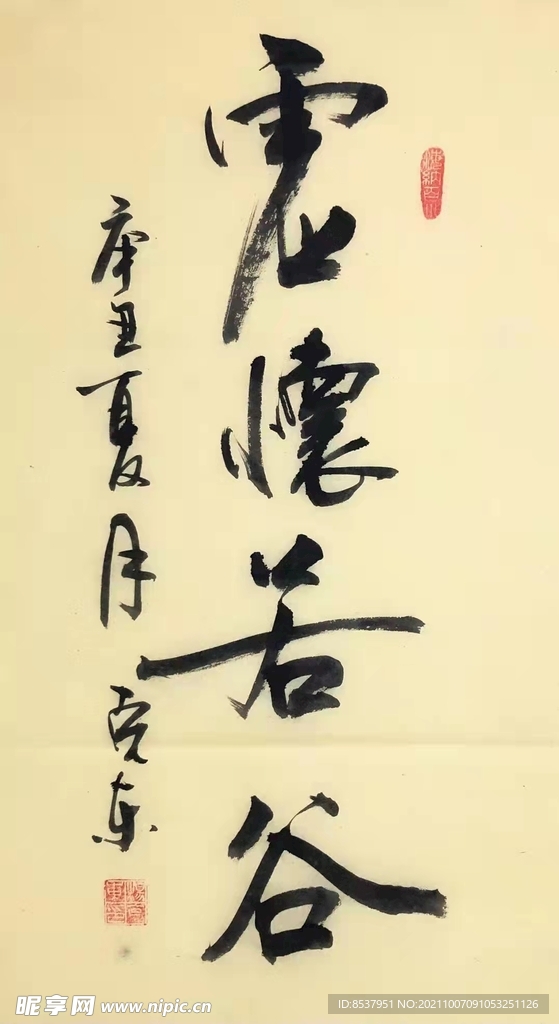 虚懷若谷
庚丑夏月
昵享网 www.nipic.cn
ID:8537951 NO:20211007091053251126